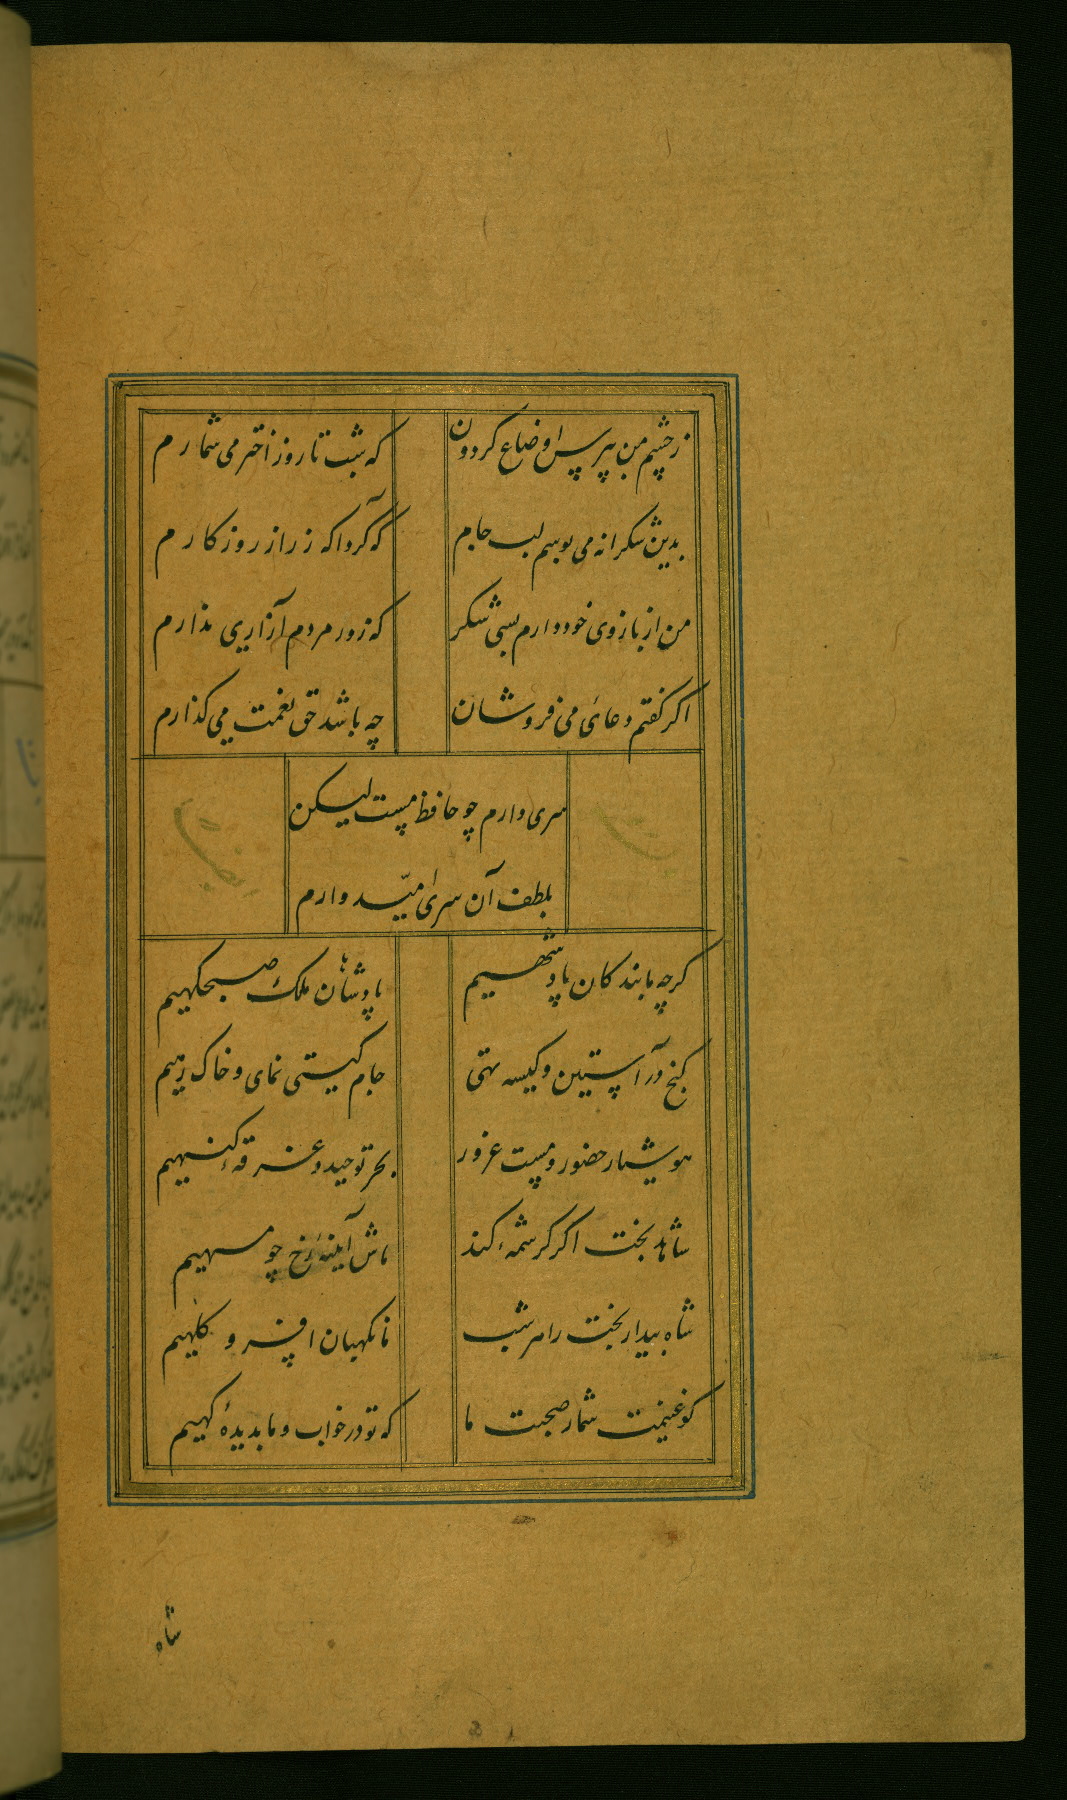 ز چشم من بپرس اوضاع گردون
که شب تا روز اختر می شمارم
بدین شکرانه می بوسم لب جام
که کرد آگه ز راز روزکارم
من از بازوی خود دارم بسی شکر
که زور مردم آزاری ندارم
اکر کفتم دعای می فروشان
چه باشد حق نعمت می کذارم
سری دارم چو حافظ مست لیکن
بلطف آن سری امیدوارم
کرچه ما بندکان پادشهیم
پادشاهان ملک صبحکهیم
کنج در آستین و کیسه تهی
جام کیتی نمای و خاک رهیم
هوشیار حضور و مست غرور
بحر توحید و غرقه کنهیم
شاهد بخت اکر کرشمه کند
ماش آیینه رخ چو مهیم
شاه بیدار بخت را هر شب
ما نکهبان افسر و کلهیم
کو غنیمت شمار صحبت ما
که تو در خواب و ما بدیده کهیم
شاه